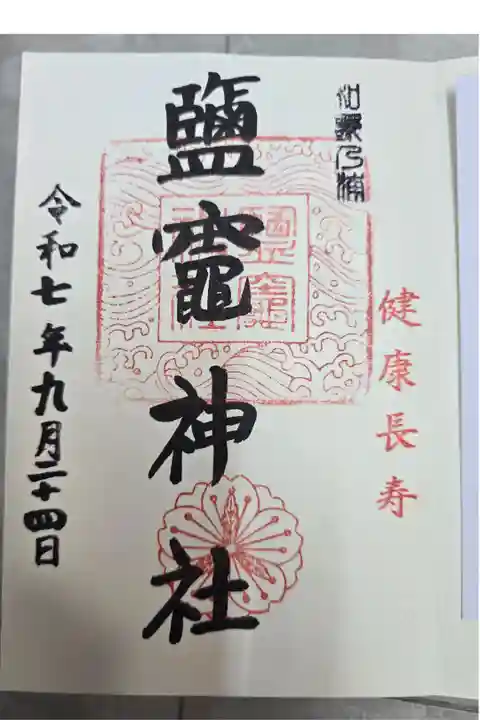 健康長寿
鹽竈神社
鹽竈
神社
令和七年九月二十四日